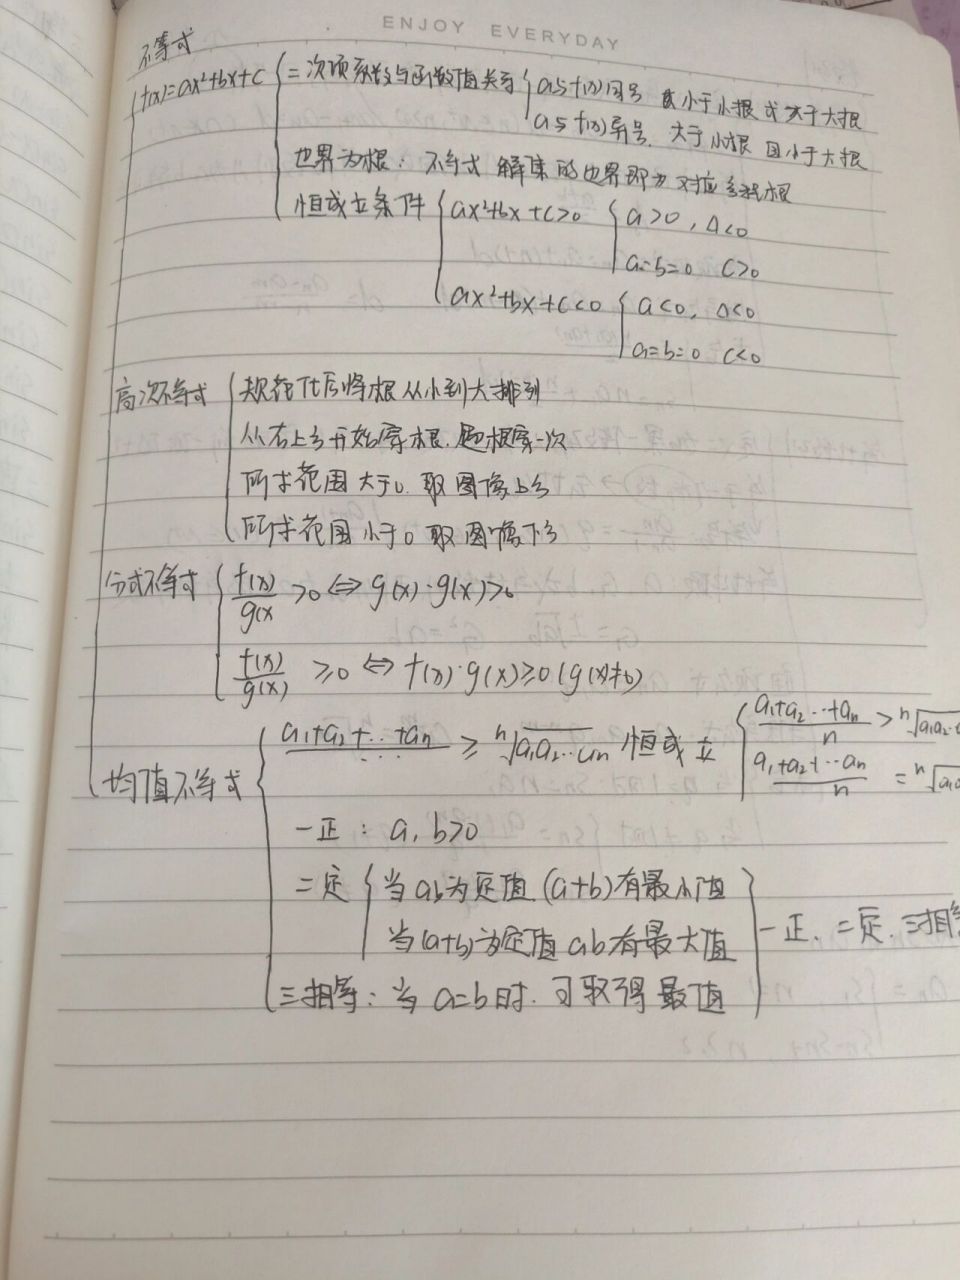 ENJOY EVERYDAY
不等式
f(x)=ax²+bx+c
二次项系数与函数值关系
a与f(x)同号 小于小根 或 大于大根
a与f(x)异号. 大于小根 且小于大根
也界为根: 不等式 解集的也界即为 对应方程根
恒成立条件
ax²+bx+c>0
a>0, Δ<0
a=b=0 c>0
ax²+bx+c<0
a<0, Δ<0
a=b=0 c<0
高次不等式
规范化后将根从小到大排列
从右上方开始穿根. 遇根穿一次
所求范围大于0. 取图像上方
所求范围小于0 取图像下方
分式不等式
f(x)/g(x >0 ⇔ g(x)·g(x)>0
f(x)/g(x) ≥0 ⇔ f(x)·g(x)≥0 (g(x)≠0)
均值不等式
a₁+a₂+…+aₙ/… ≥ ⁿ√a₁a₂…aₙ 恒成立
a₁+a₂…+aₙ/n > ⁿ√a₁a₂
a₁+a₂+…aₙ/n = ⁿ√a₁a
一正: a, b>0
二定
当ab为定值 (a+b)有最小值
当(a+b)为定值 ab有最大值
三相等: 当 a=b时. 可取得最值
一正. 二定. 三相等